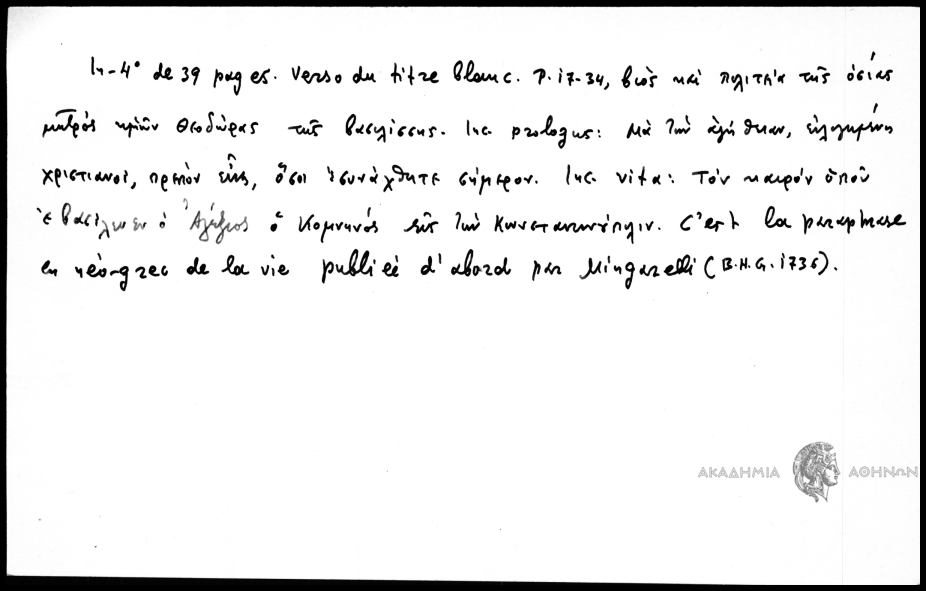 In-4° de 39 pages. Verso du titre blanc. P. 17-34, βίος καὶ πολιτεία τῆς ὁσίας
μητρὸς ἡμῶν Θεοδώρας τῆς βασιλίσσης. Inc. prologus: Μὰ τὴν ἀλήθειαν, εὐλογημένοι
χριστιανοί, πρέπον εἶναι, ὅσοι ἐσυνάχθητε σήμερον. Inc. vita: Τὸν καιρὸν ὁποῦ
ἐβασίλευεν ὁ Ἀλέξιος ὁ Κομνηνὸς εἰς τὴν Κωνσταντινούπολιν. C'est la paraphrase
en néo-grec de la vie publiée d'abord par Mingarelli (B.H.G. 1736).
ΑΚΑΔΗΜΙΑ ΑΘΗΝΩΝ